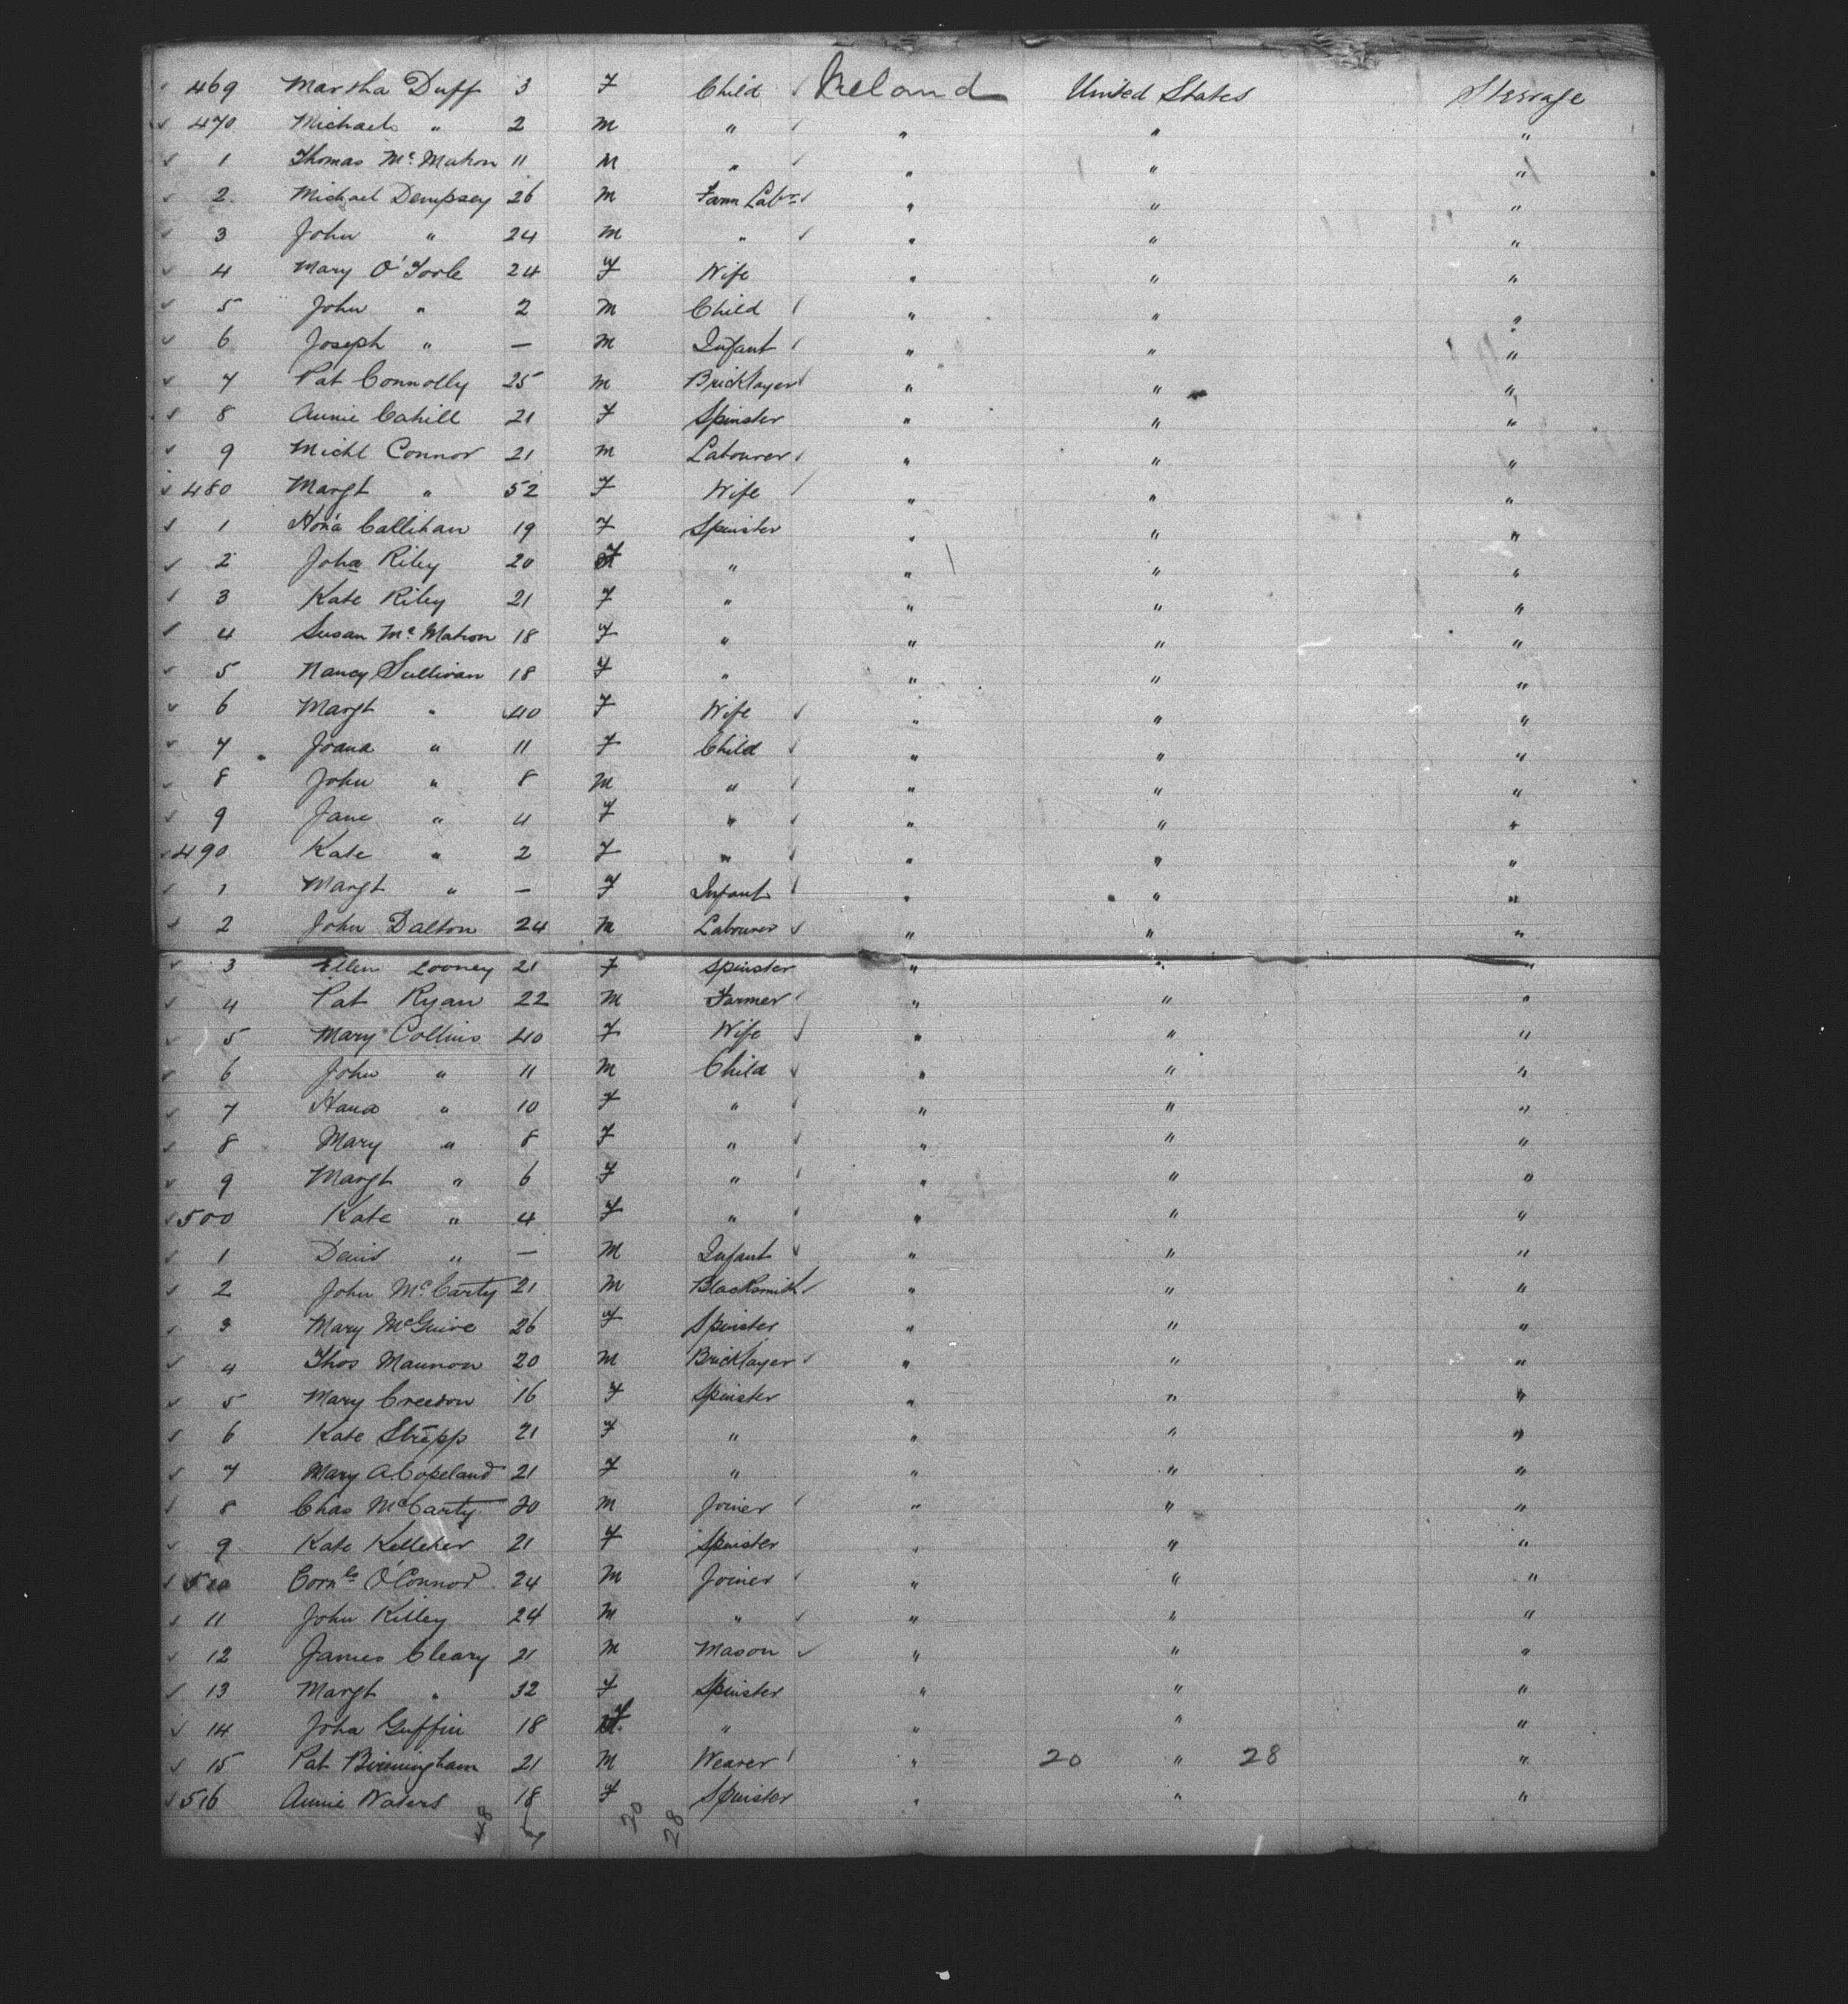 469 Martha Duff 3 F Child Ireland United States Steerage
470 Michael " 2 M " " " "
1 Thomas Mc Mahon 11 M " " " "
2 Michael Dempsey 26 M Farm Labr " " "
3 John " 24 M " " " "
4 Mary O'Toole 24 F Wife " " "
5 John " 2 M Child " " "
6 Joseph " — M Infant " " "
7 Pat Connolly 25 M Bricklayer " " "
8 Annie Cahill 21 F Spinster " " "
9 Michl Connor 21 M Labourer " " "
480 Margt " 52 F Wife " " "
1 Hona Callihan 19 F Spinster " " "
2 Joha Riley 20 F " " " "
3 Kate Riley 21 F " " " "
4 Susan Mc Mahon 18 F " " " "
5 Nancy Sullivan 18 F " " " "
6 Margt " 40 F Wife " " "
7 Joana " 11 F Child " " "
8 John " 8 M " " " "
9 Jane " 4 F " " " "
490 Kate " 2 F " " " "
1 Margt " — F Infant " " "
2 John Dalton 24 M Labourer " " "
3 Ellen Looney 21 F Spinster " " "
4 Pat Ryan 22 M Farmer " " "
5 Mary Collins 40 F Wife " " "
6 John " 11 M Child " " "
7 Hana " 10 F " " " "
8 Mary " 8 F " " " "
9 Margt " 6 F " " " "
500 Kate " 4 F " " " "
1 Denis " — M Infant " " "
2 John McCarty 21 M Blacksmith " " "
3 Mary McGuire 26 F Spinster " " "
4 Thos Mannon 20 M Bricklayer " " "
5 Mary Creedon 16 F Spinster " " "
6 Kate 21 F " " " "
7 Mary A Copeland 21 F " " " "
8 Chas McCarty 20 M Joiner " " "
9 Kate Kelleher 21 F Spinster " " "
510 Corns O'Connor 24 M Joiner " " "
11 John Killey 24 M " " " "
12 James Cleary 21 M Mason " " "
13 Margt " 32 F Spinster " " "
14 Joha Guffin 18 F " " " "
15 Pat Birmingham 21 M Weaver " 20 " 28 "
516 Annie Waters 18 F Spinster " " "
48 20 28